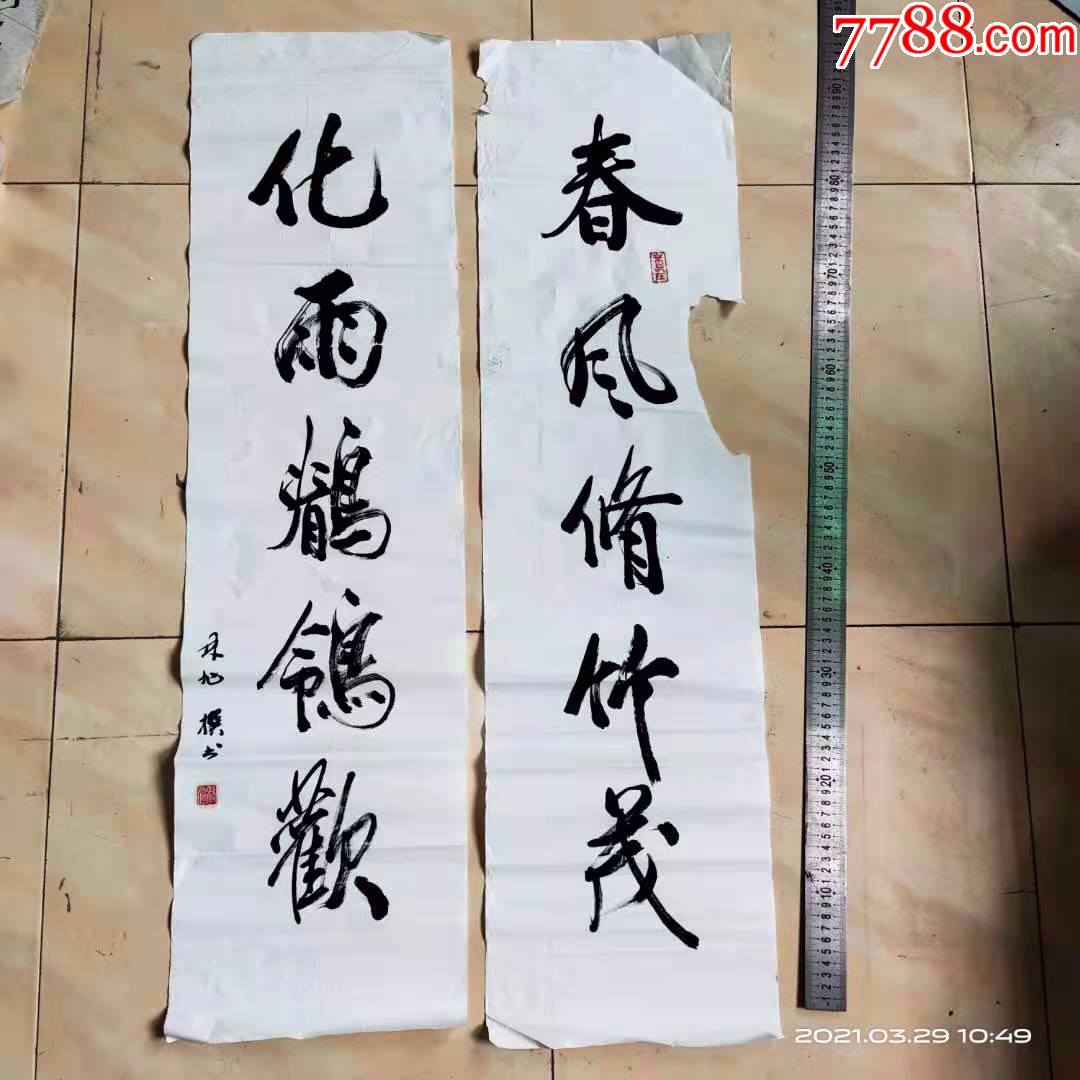 7788.com
春风脩竹茂
化雨鶺鴒歡
林旭 撰书
2021.03.29 10:49